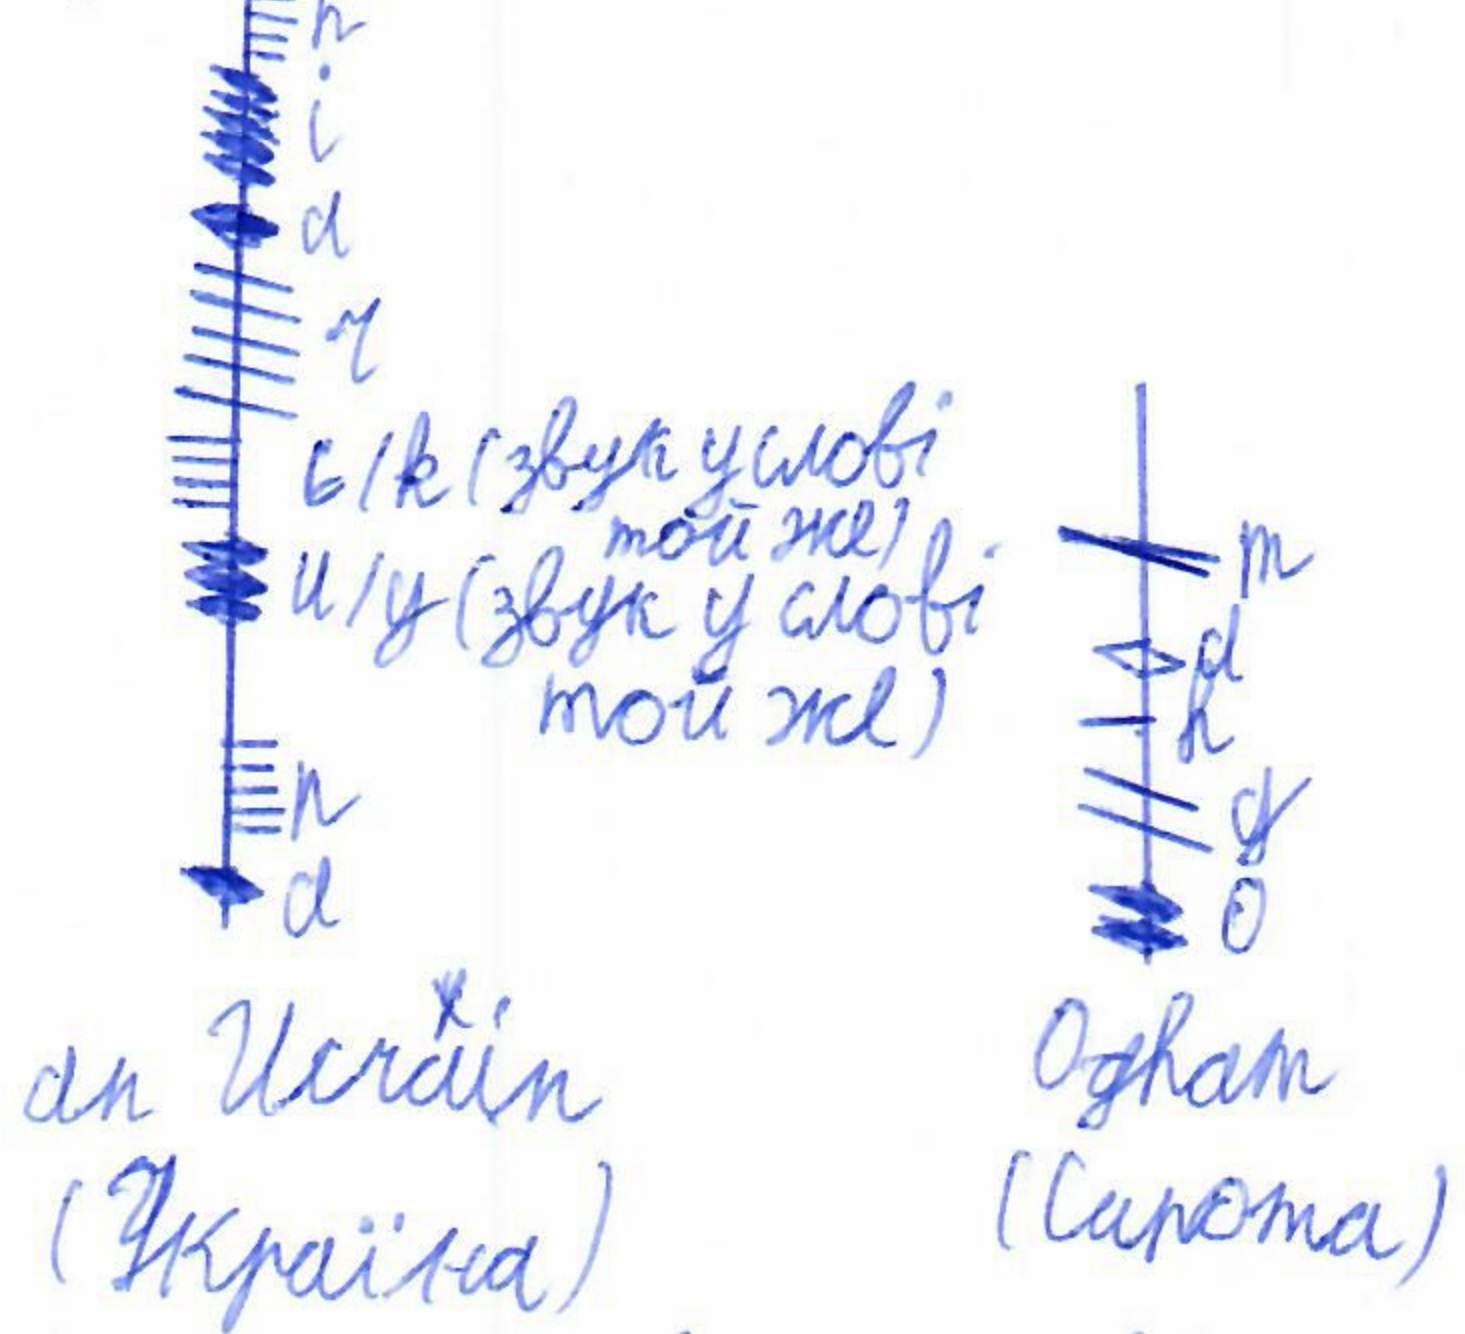 n
i
a
r
c/k (звук у слові
той же)
u/у (звук у слові
той же)
n
a
m
a
h
g
o
an Ucráin
(Україна)
Ogham
(Сирота)